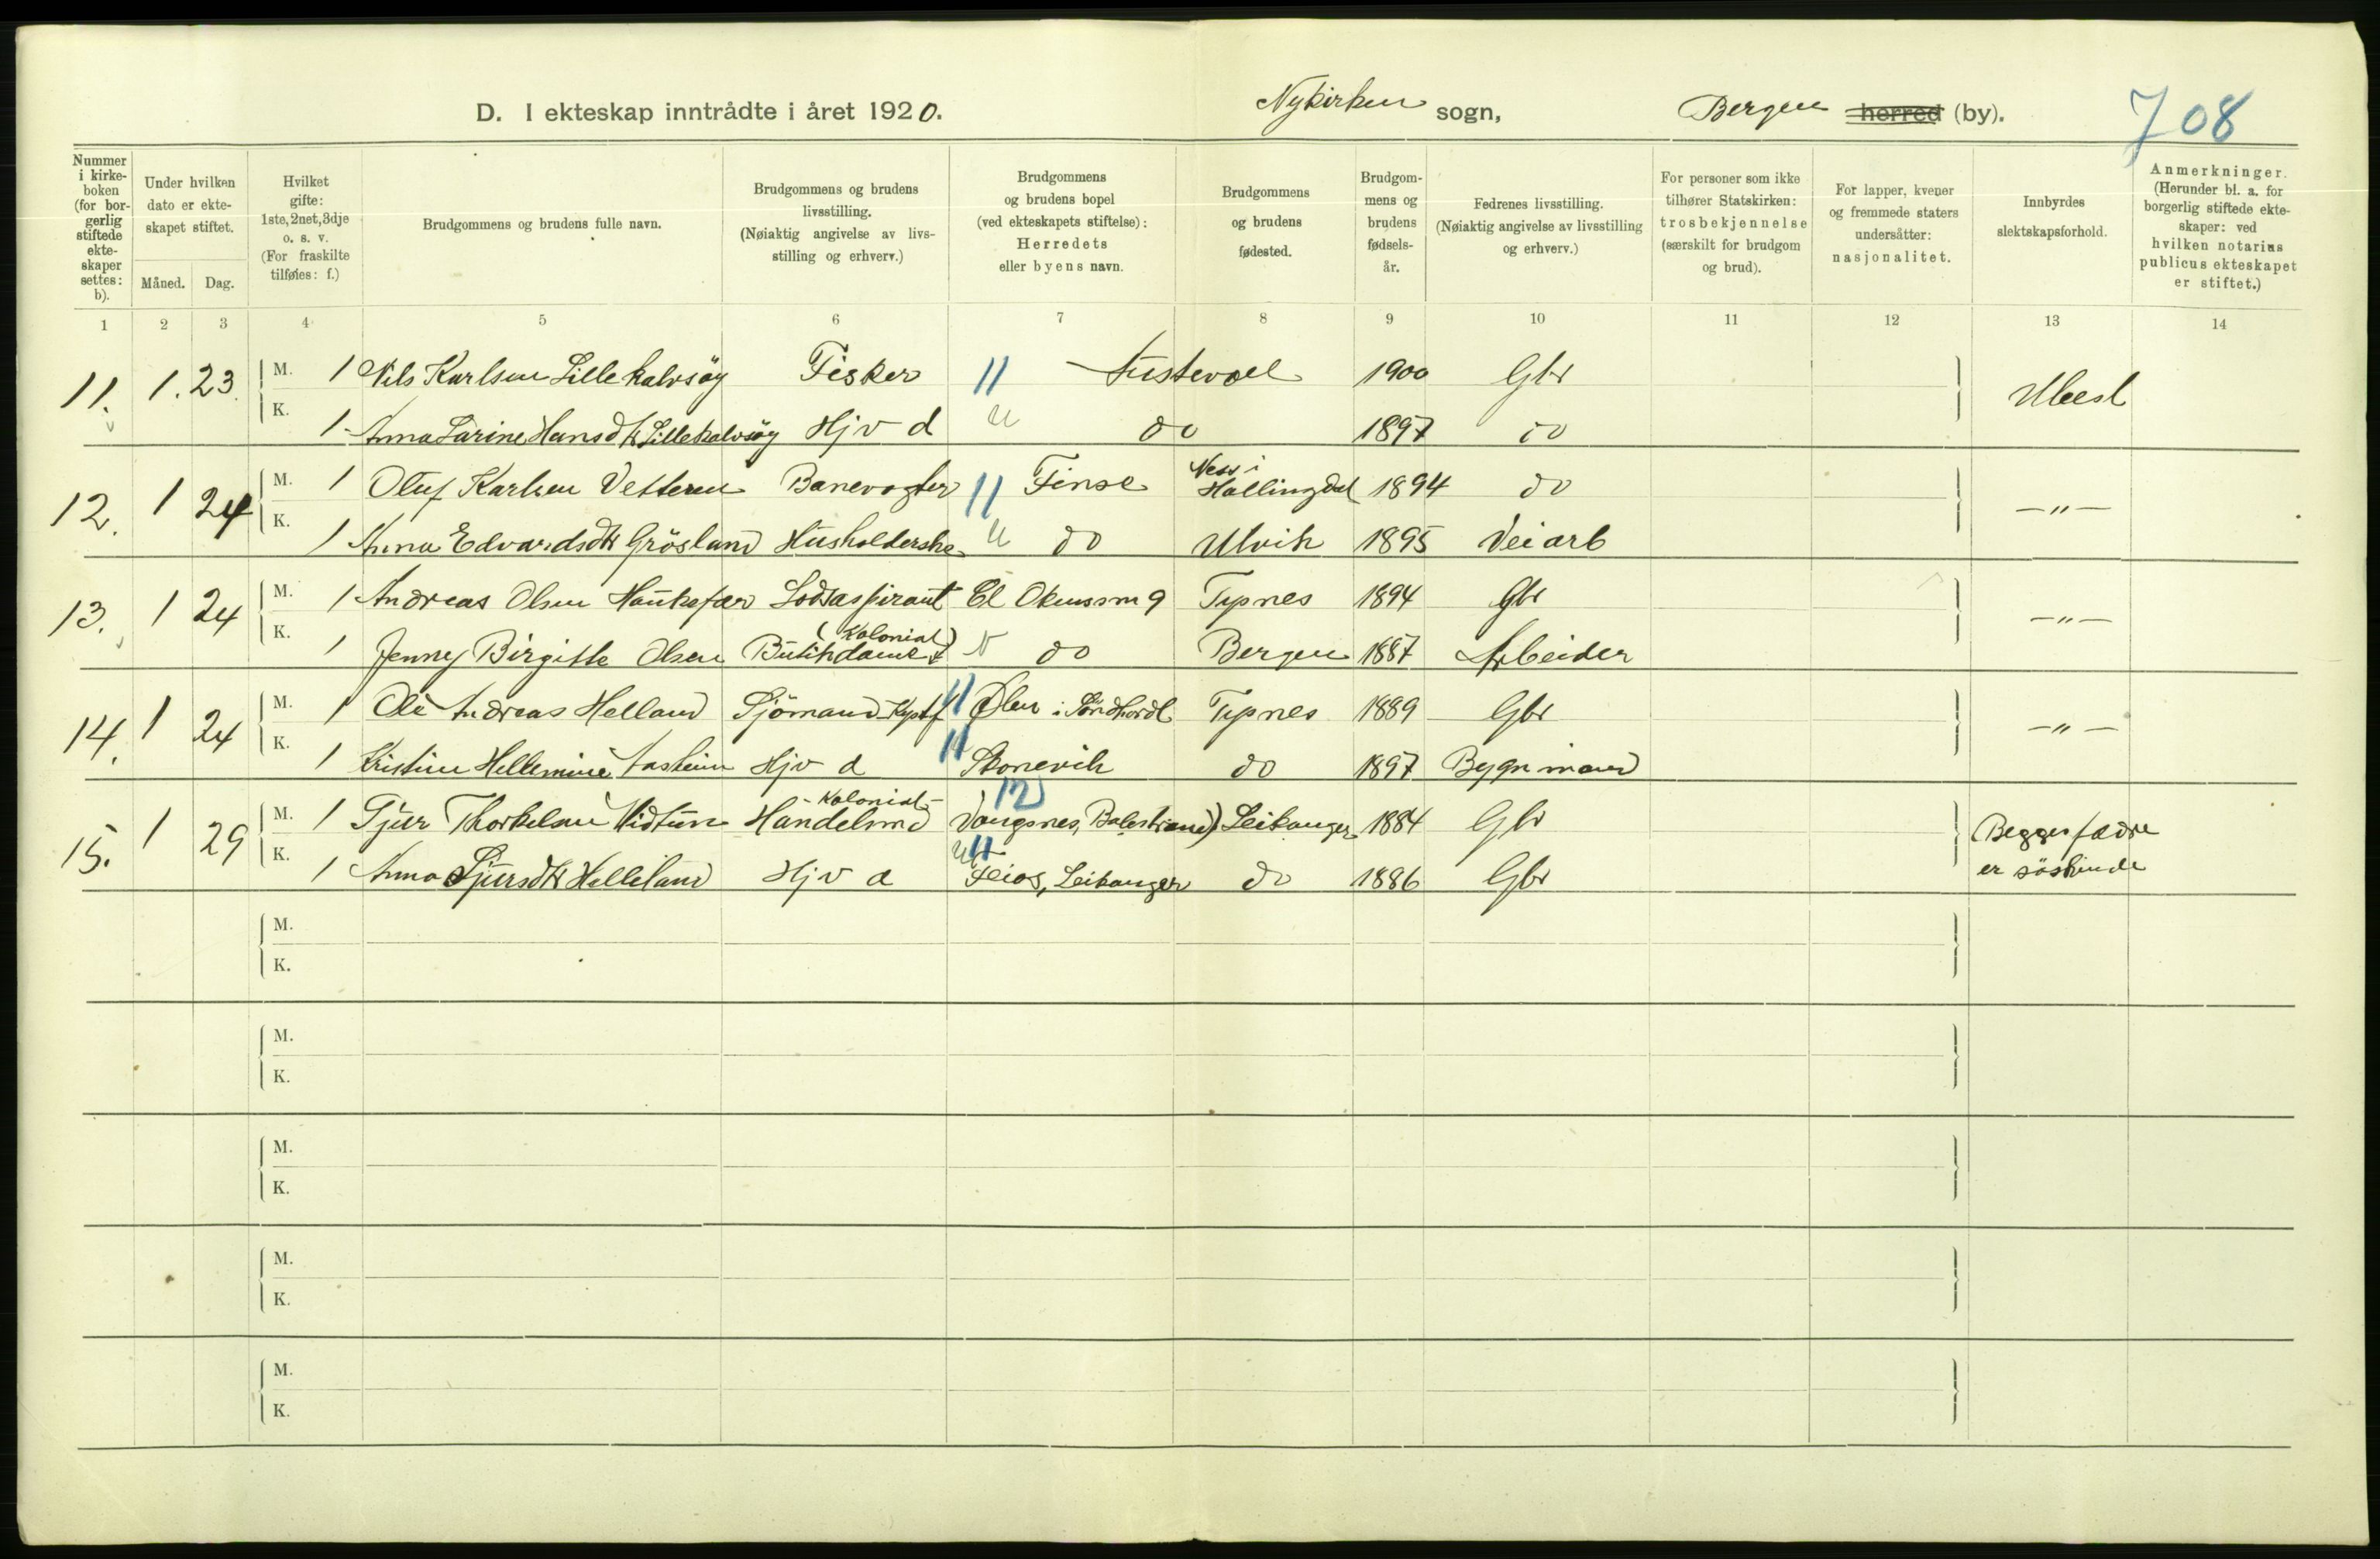 D. I ekteskap inntrådte i året 1920. Nykirken sogn, Bergen herred (by). 708
Nummer i kirkeboken (for borgerlig stiftede ekteskaper settes: b).
Under hvilken dato er ekteskapet stiftet.
Måned. Dag.
Hvilket gifte: 1ste, 2net, 3dje o. s. v. (For fraskilte tilføies: f.)
Brudgommens og brudens fulle navn.
Brudgommens og brudens livsstilling. (Nøiaktig angivelse av livsstilling og erhverv.)
Brudgommens og brudens bopel (ved ekteskapets stiftelse): Herredets eller byens navn.
Brudgommens og brudens fødested.
Brudgommens og brudens fødselsår.
Fedrenes livsstilling. (Nøiaktig angivelse av livsstilling og erhverv.)
For personer som ikke tilhører Statskirken: trosbekjennelse (særskilt for brudgom og brud).
For lapper, kvener og fremmede staters undersåtter: nasjonalitet.
Innbyrdes slektskapsforhold.
Anmerkninger. (Herunder bl. a. for borgerlig stiftede ekteskaper: ved hvilken notarius publicus ekteskapet er stiftet.)
1 2 3 4 5 6 7 8 9 10 11 12 13 14
11. 1. 23. M. 1 Nils Karlsen Lillekalvsöy Fisker 11 Austevoll 1900 Gbr Ubesl
K. 1 Anna Larine Hansdtr Lillekalvsöy Hjv d u do 1897 do
12. 1 24 M. 1 Oluf Karlsen Vetteren Banevogter 11 Finse Ness i Hallingdal 1894 do —"—
K. 1 Anna Edvardsdtr Grösland Husholderske u do Ulvik 1895 Veiarb
13. 1 24 M. 1 Andreas Olsen Haukefær Lodsaspirant 9 Tysnes 1894 Gbr —"—
K. 1 Jenny Birgitte Olsen Butikdame (Kolonial) do Bergen 1887 Arbeider
14. 1 24 M. 1 Ole Andreas Helland Sjömand Kystf 11 Ølen i Söndhordl Tysnes 1889 Gbr —"—
K. 1 Kristine Hellemine Aasheim Hjv d 11 Skonevik do 1897 Bygn mand
15. 1 29 M. 1 Sjur Thorkelsen Midtun Handelsmd - Kolonial - 12 Vangsnes, Balestrand) Leikanger 1884 Gbr Begges fædre
K. 1 Anna Sjursdtr Helleland Hjv d 11 Feios, Leikanger do 1886 Gbr er söskende
M.
K.
M.
K.
M.
K.
M.
K.
M.
K.